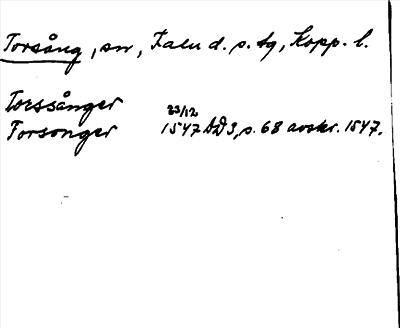 Torsång, sn, Falu d. s. tg, Kopp. l.
Torssånger
Forsonger 23/12 1547 AD 3, s. 68 avskr. 1547.